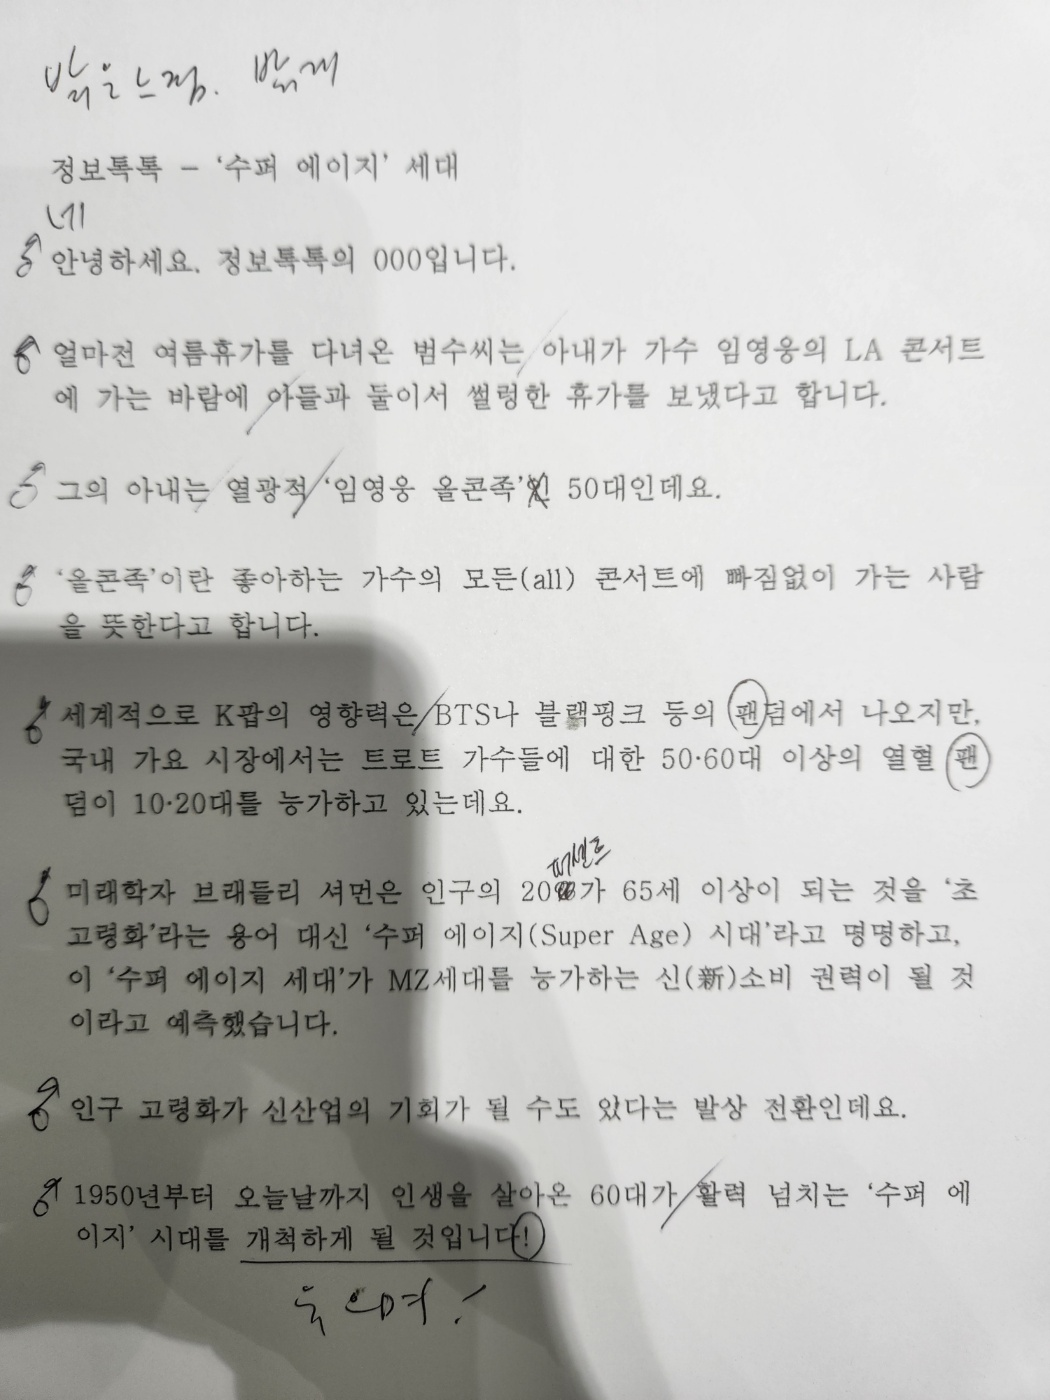 밝은 느낌. 밝게
정보톡톡 - ‘수퍼 에이지’ 세대
네
안녕하세요. 정보톡톡의 000입니다.
얼마전 여름휴가를 다녀온 범수씨는 아내가 가수 임영웅의 LA 콘서트
에 가는 바람에 아들과 둘이서 썰렁한 휴가를 보냈다고 합니다.
그의 아내는 열광적 ‘임영웅 올콘족’ 50대인데요.
‘올콘족’이란 좋아하는 가수의 모든(all) 콘서트에 빠짐없이 가는 사람
을 뜻한다고 합니다.
세계적으로 K팝의 영향력은 BTS나 블랙핑크 등의 팬덤에서 나오지만,
국내 가요 시장에서는 트로트 가수들에 대한 50·60대 이상의 열혈 팬
덤이 10·20대를 능가하고 있는데요.
퍼센트
미래학자 브래들리 셔먼은 인구의 20가 65세 이상이 되는 것을 ‘초
고령화’라는 용어 대신 ‘수퍼 에이지(Super Age) 시대’라고 명명하고,
이 ‘수퍼 에이지 세대’가 MZ세대를 능가하는 신(新)소비 권력이 될 것
이라고 예측했습니다.
인구 고령화가 신산업의 기회가 될 수도 있다는 발상 전환인데요.
1950년부터 오늘날까지 인생을 살아온 60대가 활력 넘치는 ‘수퍼 에
이지’ 시대를 개척하게 될 것입니다!